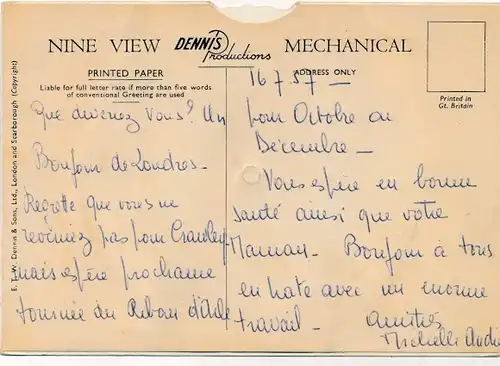 NINE VIEW DENNIS Productions MECHANICAL
PRINTED PAPER
Liable for full letter rate if more than five words
of conventional Greeting are used
ADDRESS ONLY
Printed in
Gt. Britain
E. T. W. Dennis & Sons, Ltd., London and Scarborough (Copyright)
Que devenez Vous? Un
Bonjour de Londres -
Regrette que vous ne
pas pour Crawley
mais espère prochaine
tournée du Ruban d'Acier
16 7 57 -
pour Octobre ou
Décembre -
Vous espère en bonne
santé ainsi que votre
Maman. Bonjour à tous
en hate avec un enorme
travail - Amitiés
Michelle